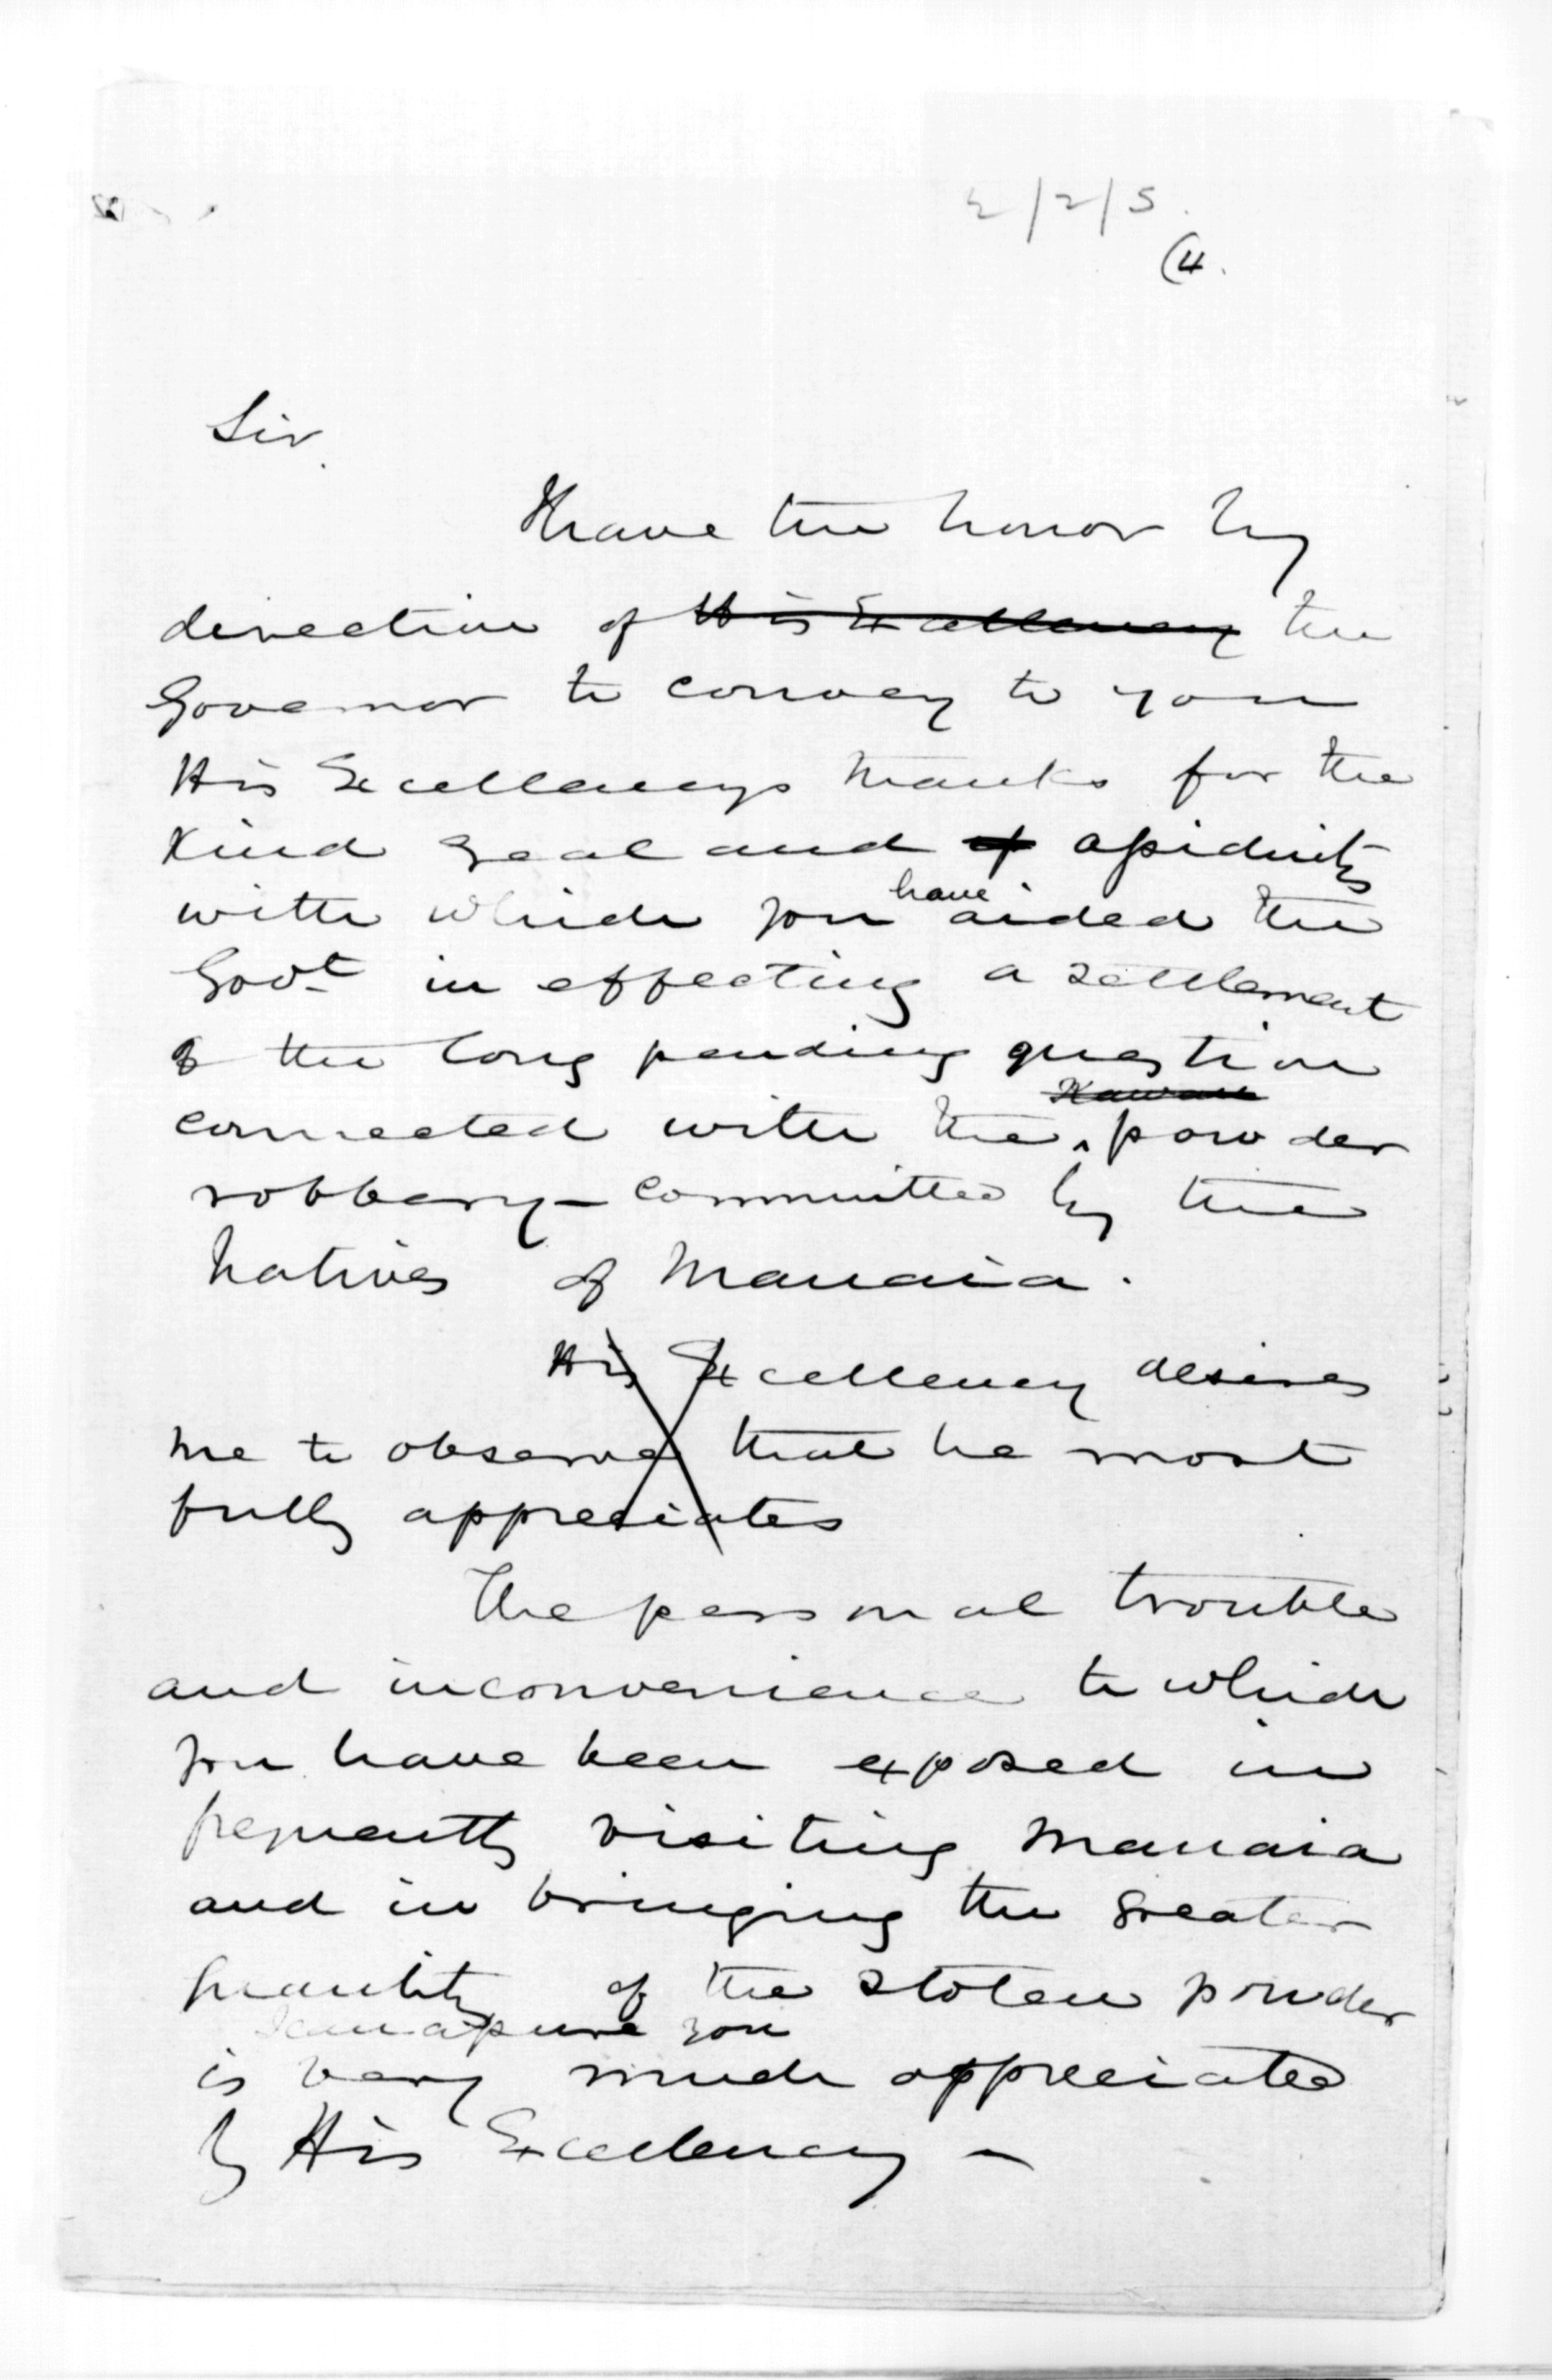 2/2/5.
(4.
Sir.
I have the honor by
direction of His Excellency the
Governor to convey to you
His Excellencys thanks for the
kind zeal and of assiduity
with which you have aided the
Govt in effecting a settlement
of the long pending question
Kawau
connected with the powder
robbery - committed by the
Natives of Manaia.
His Excellency desires
me to observe that he most
fully appreciates
The personal trouble
and inconvenience to which
you have been exposed in
frequently visiting Manaia
and in bringing the greater
quantity of the stolen powder
I can assure you
is very much appreciated
by His Excellency -